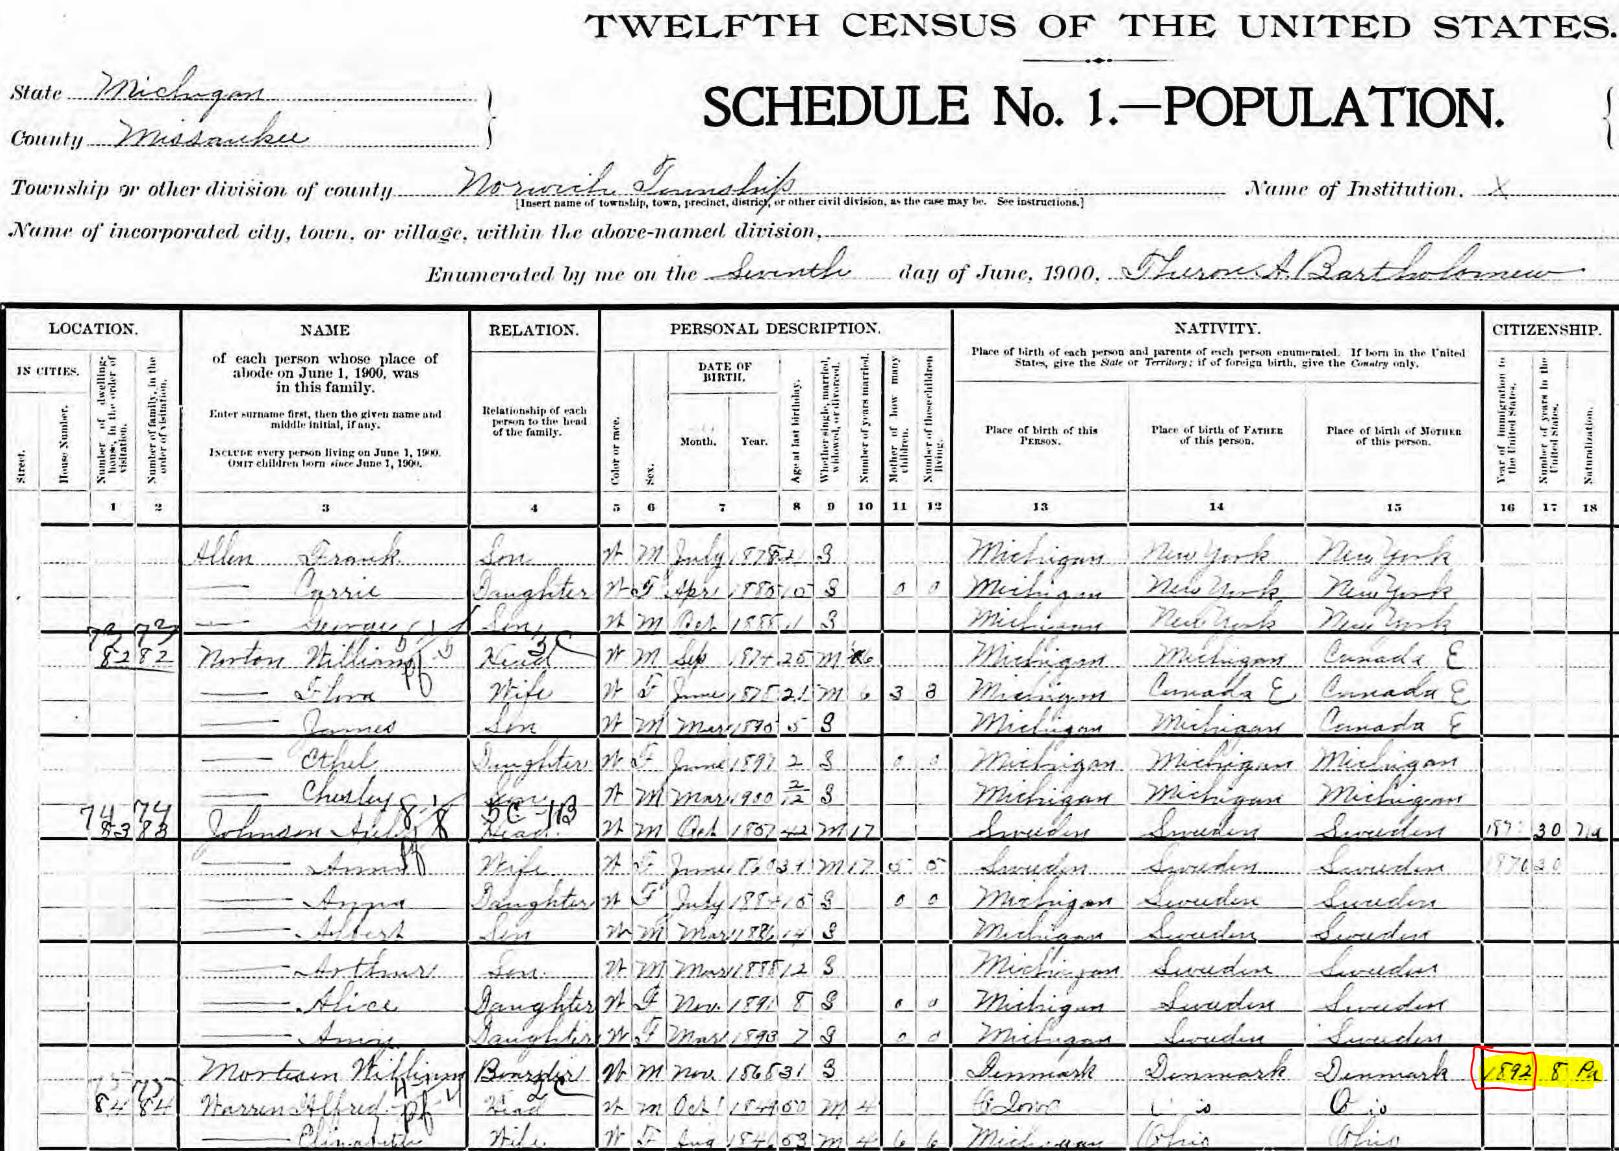 TWELFTH CENSUS OF THE UNITED STATES.
State Michigan
SCHEDULE No. 1.—POPULATION.
County Missaukee
Township or other division of county Norwich Township Name of Institution, X
[Insert name of township, town, precinct, district, or other civil division, as the case may be. See instructions.]
Name of incorporated city, town, or village, within the above-named division,
Enumerated by me on the Seventh day of June, 1900, Theron A. Bartholomew
LOCATION. NAME RELATION. PERSONAL DESCRIPTION. NATIVITY. CITIZENSHIP.
IN CITIES.
Street.
House Number.
Number of dwelling-house, in the order of visitation.
Number of family, in the order of visitation.
of each person whose place of abode on June 1, 1900, was in this family.
Enter surname first, then the given name and middle initial, if any.
INCLUDE every person living on June 1, 1900.
OMIT children born since June 1, 1900.
Relationship of each person to the head of the family.
Color or race.
Sex.
DATE OF BIRTH.
Month. Year.
Age at last birthday.
Whether single, married, widowed, or divorced.
Number of years married.
Mother of how many children.
Number of these children living.
Place of birth of each person and parents of each person enumerated. If born in the United States, give the State or Territory; if of foreign birth, give the Country only.
Place of birth of this PERSON.
Place of birth of FATHER of this person.
Place of birth of MOTHER of this person.
Year of immigration to the United States.
Number of years in the United States.
Naturalization.
1 2 3 4 5 6 7 8 9 10 11 12 13 14 15 16 17 18
Allen Frank Son W M July 1878 21 S Michigan New York New York
Carrie Daughter W F Apr 15 S 0 0 Michigan New York New York
George Son W M Oct 1888 11 S Michigan New York New York
73 73
82 82 Norton William Head W M Sep 1874 25 M 6 Michigan Michigan Canada E
Flora Wife W F June 1878 21 M 6 3 3 Michigan Canada E Canada E
James Son W M Mar 1895 5 S Michigan Michigan Canada E
Ethel Daughter W F June 1897 2 S 0 0 Michigan Michigan Michigan
Chesley Son W M Mar 1900 2/12 S Michigan Michigan Michigan
74 74
83 83 Johnson Head W M Oct 1857 42 M 17 Sweden Sweden Sweden 30 Na
Wife W F June M 17 5 5 Sweden Sweden Sweden 1870 30
Anna Daughter W F July 1884 15 S 0 0 Michigan Sweden Sweden
Albert Son W M Mar 1886 14 S Michigan Sweden Sweden
Arthur Son W M Mar 1888 12 S Michigan Sweden Sweden
Alice Daughter W F Nov 1891 8 S 0 0 Michigan Sweden Sweden
Daughter W F Mar 1893 7 S 0 0 Michigan Sweden Sweden
Mortesen William Boarder W M Nov 1868 31 S Denmark Denmark Denmark 1892 8 Pa
75 75
84 84 Warren Alfred Head W M Oct 1849 50 M 4
Wife W F Aug 1846 53 M 4 6 6 Michigan Ohio Ohio